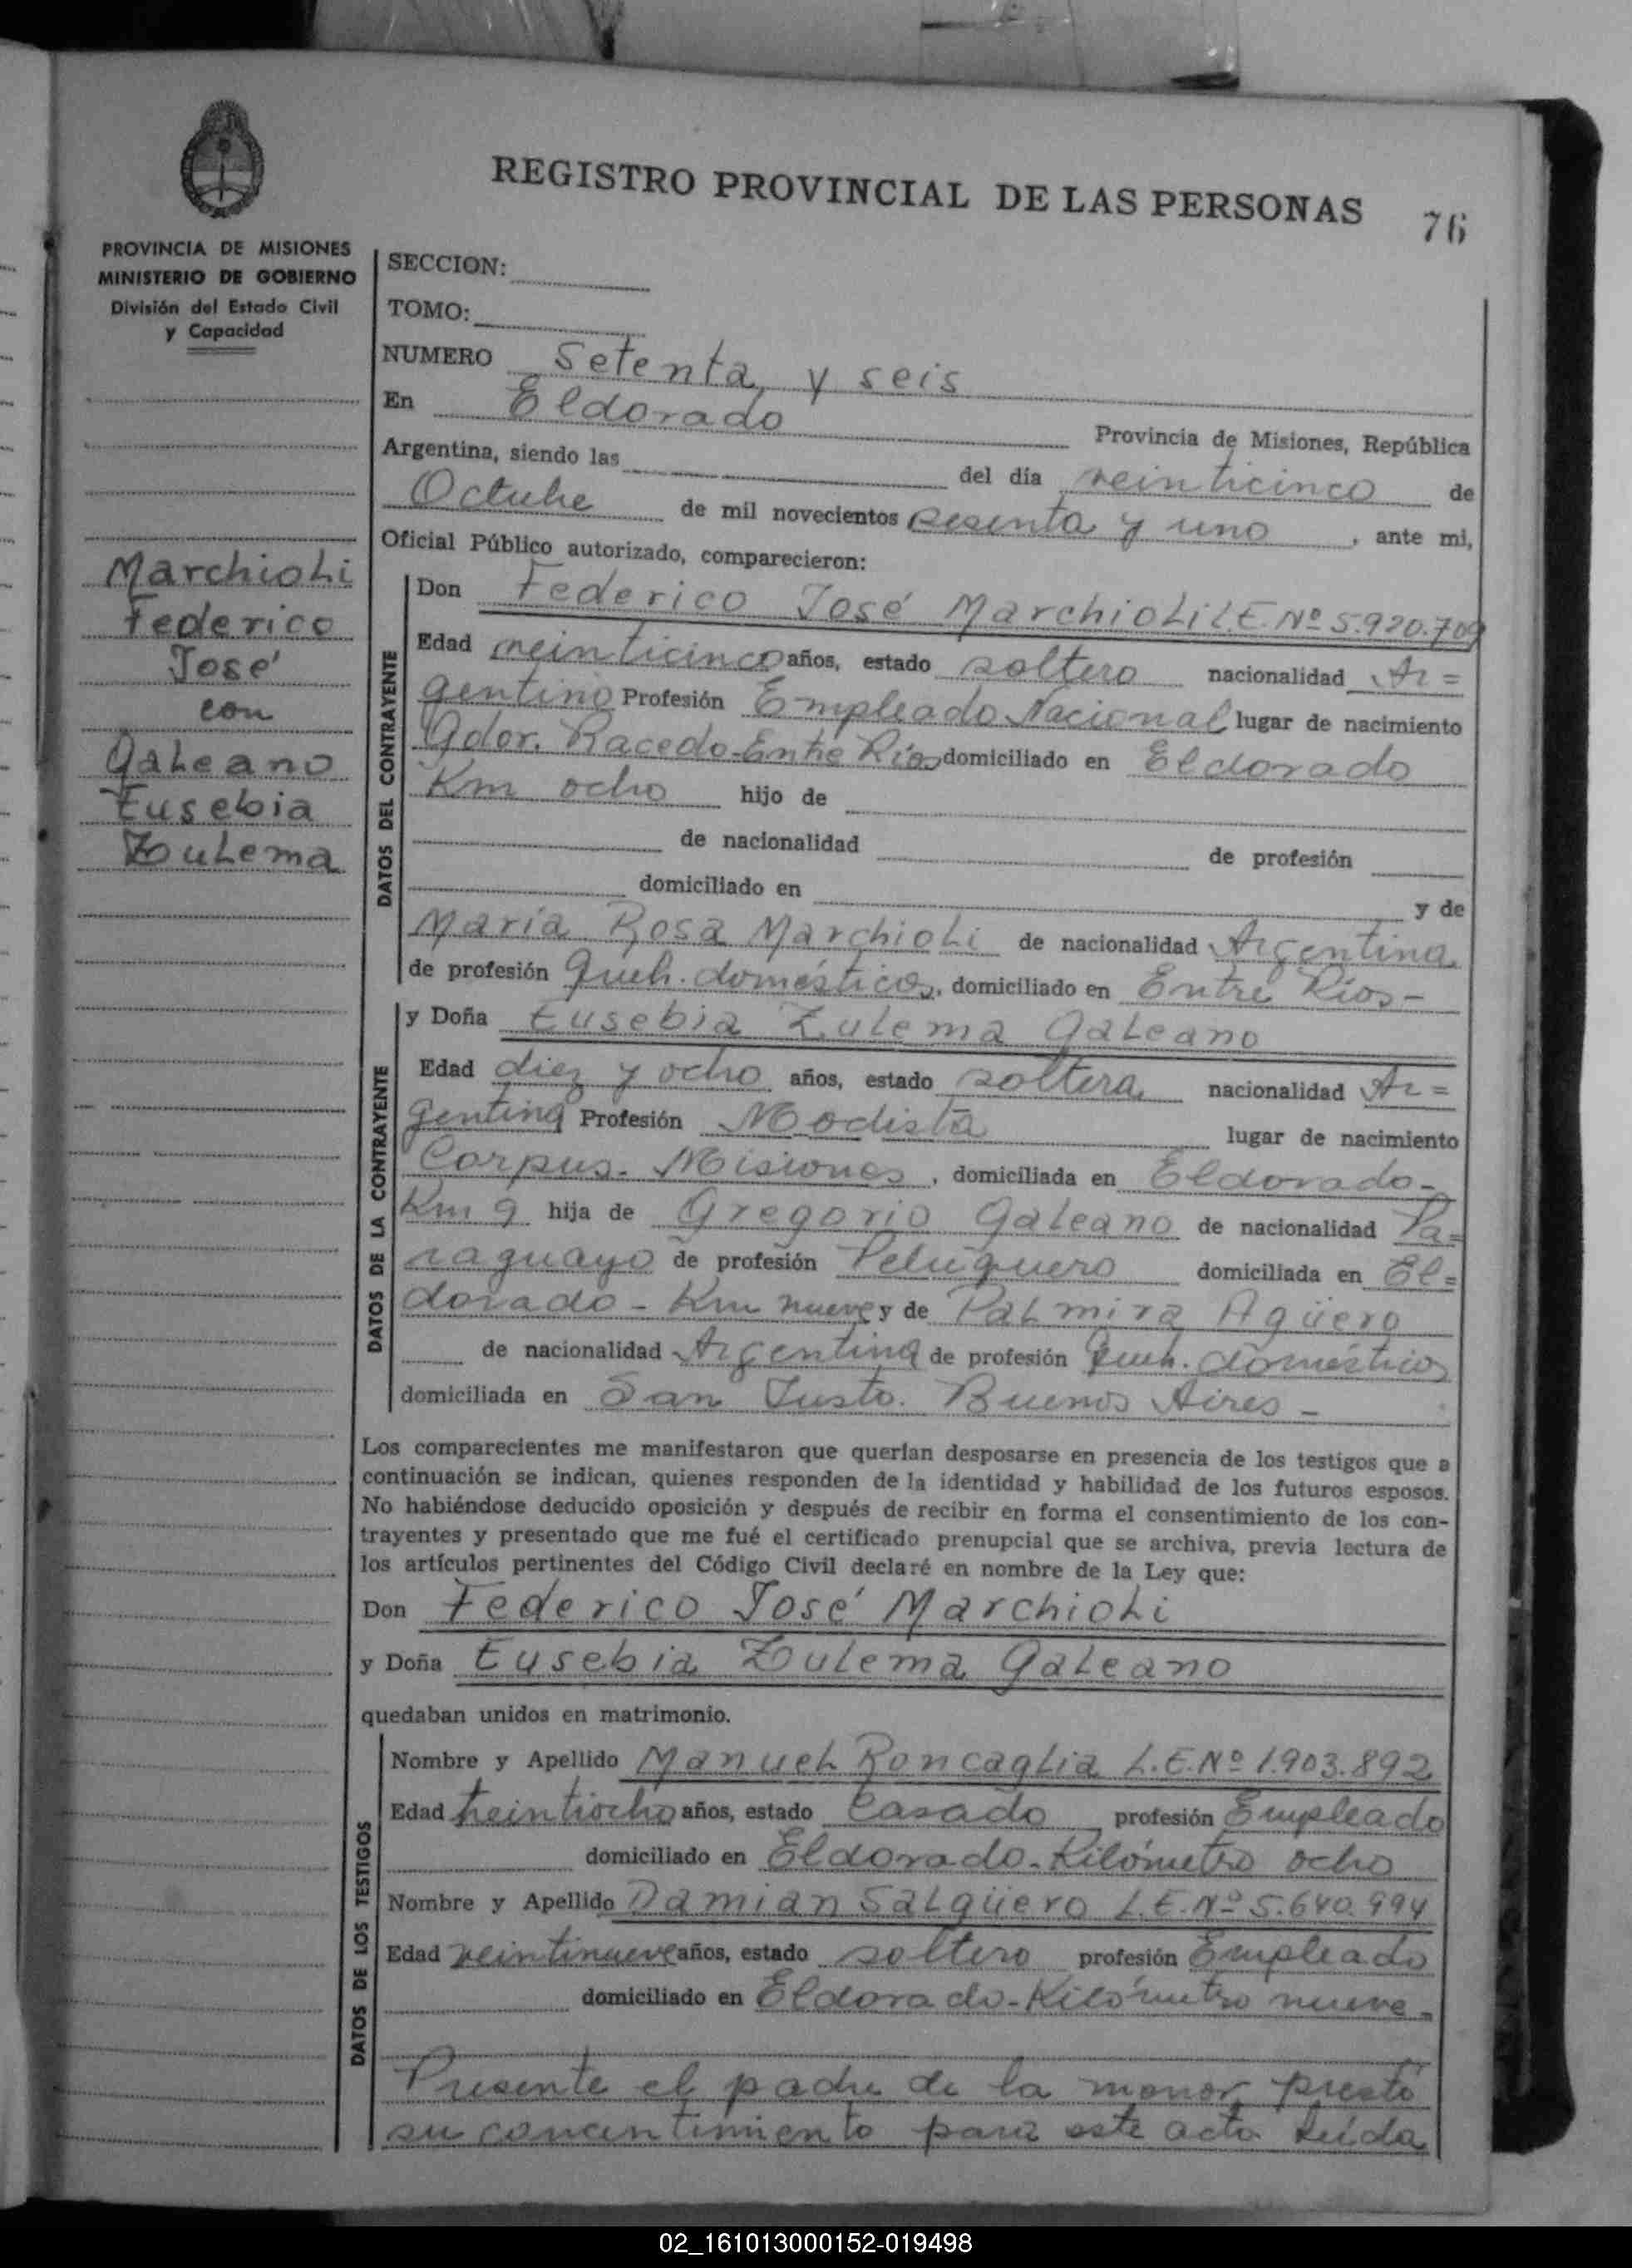 REGISTRO PROVINCIAL DE LAS PERSONAS 76
PROVINCIA DE MISIONES
MINISTERIO DE GOBIERNO
División del Estado Civil
y Capacidad
Marchioli
Federico
José
con
Galeano
Eusebia
Zulema
SECCION:
TOMO:
NUMERO Setenta y seis
En Eldorado Provincia de Misiones, República
Argentina, siendo las del día veinticinco de
Octubre de mil novecientos sesenta y uno, ante mi,
Oficial Público autorizado, comparecieron:
DATOS DEL CONTRAYENTE
Don Federico José Marchioli L.E. Nº 5.920.709
Edad veinticinco años, estado soltero nacionalidad Ar=
gentino Profesión Empleado Nacional lugar de nacimiento
Gdor. Racedo-Entre Ríos domiciliado en Eldorado
Km ocho hijo de
de nacionalidad de profesión
domiciliado en y de
María Rosa Marchioli de nacionalidad Argentina
de profesión Queh. domésticos, domiciliado en Entre Ríos-
DATOS DE LA CONTRAYENTE
y Doña Eusebia Zulema Galeano
Edad diez y ocho años, estado soltera nacionalidad Ar=
gentina Profesión Modista lugar de nacimiento
Corpus. Misiones, domiciliada en Eldorado-
Km 9 hija de Gregorio Galeano de nacionalidad Pa=
raguayo de profesión Peluquero domiciliada en El=
dorado - Km nueve y de Palmira Agüero
de nacionalidad Argentina de profesión Queh. domésticos
domiciliada en San Justo. Buenos Aires -
Los comparecientes me manifestaron que querían desposarse en presencia de los testigos que a
continuación se indican, quienes responden de la identidad y habilidad de los futuros esposos.
No habiéndose deducido oposición y después de recibir en forma el consentimiento de los con-
trayentes y presentado que me fué el certificado prenupcial que se archiva, previa lectura de
los artículos pertinentes del Código Civil declaré en nombre de la Ley que:
Don Federico José Marchioli
y Doña Eusebia Zulema Galeano
quedaban unidos en matrimonio.
DATOS DE LOS TESTIGOS
Nombre y Apellido Manuel Roncaglia L.E. Nº 1.903.892
Edad treintiocho años, estado Casado profesión Empleado
domiciliado en Eldorado-Kilómetro ocho
Nombre y Apellido Damian Salgüero L.E. Nº 5.640.994
Edad veintinueve años, estado soltero profesión Empleado
domiciliado en Eldorado-Kilómetro nueve-
Presente el padre de la menor prestó
su concentimiento para este acto Leída
02_161013000152-019498